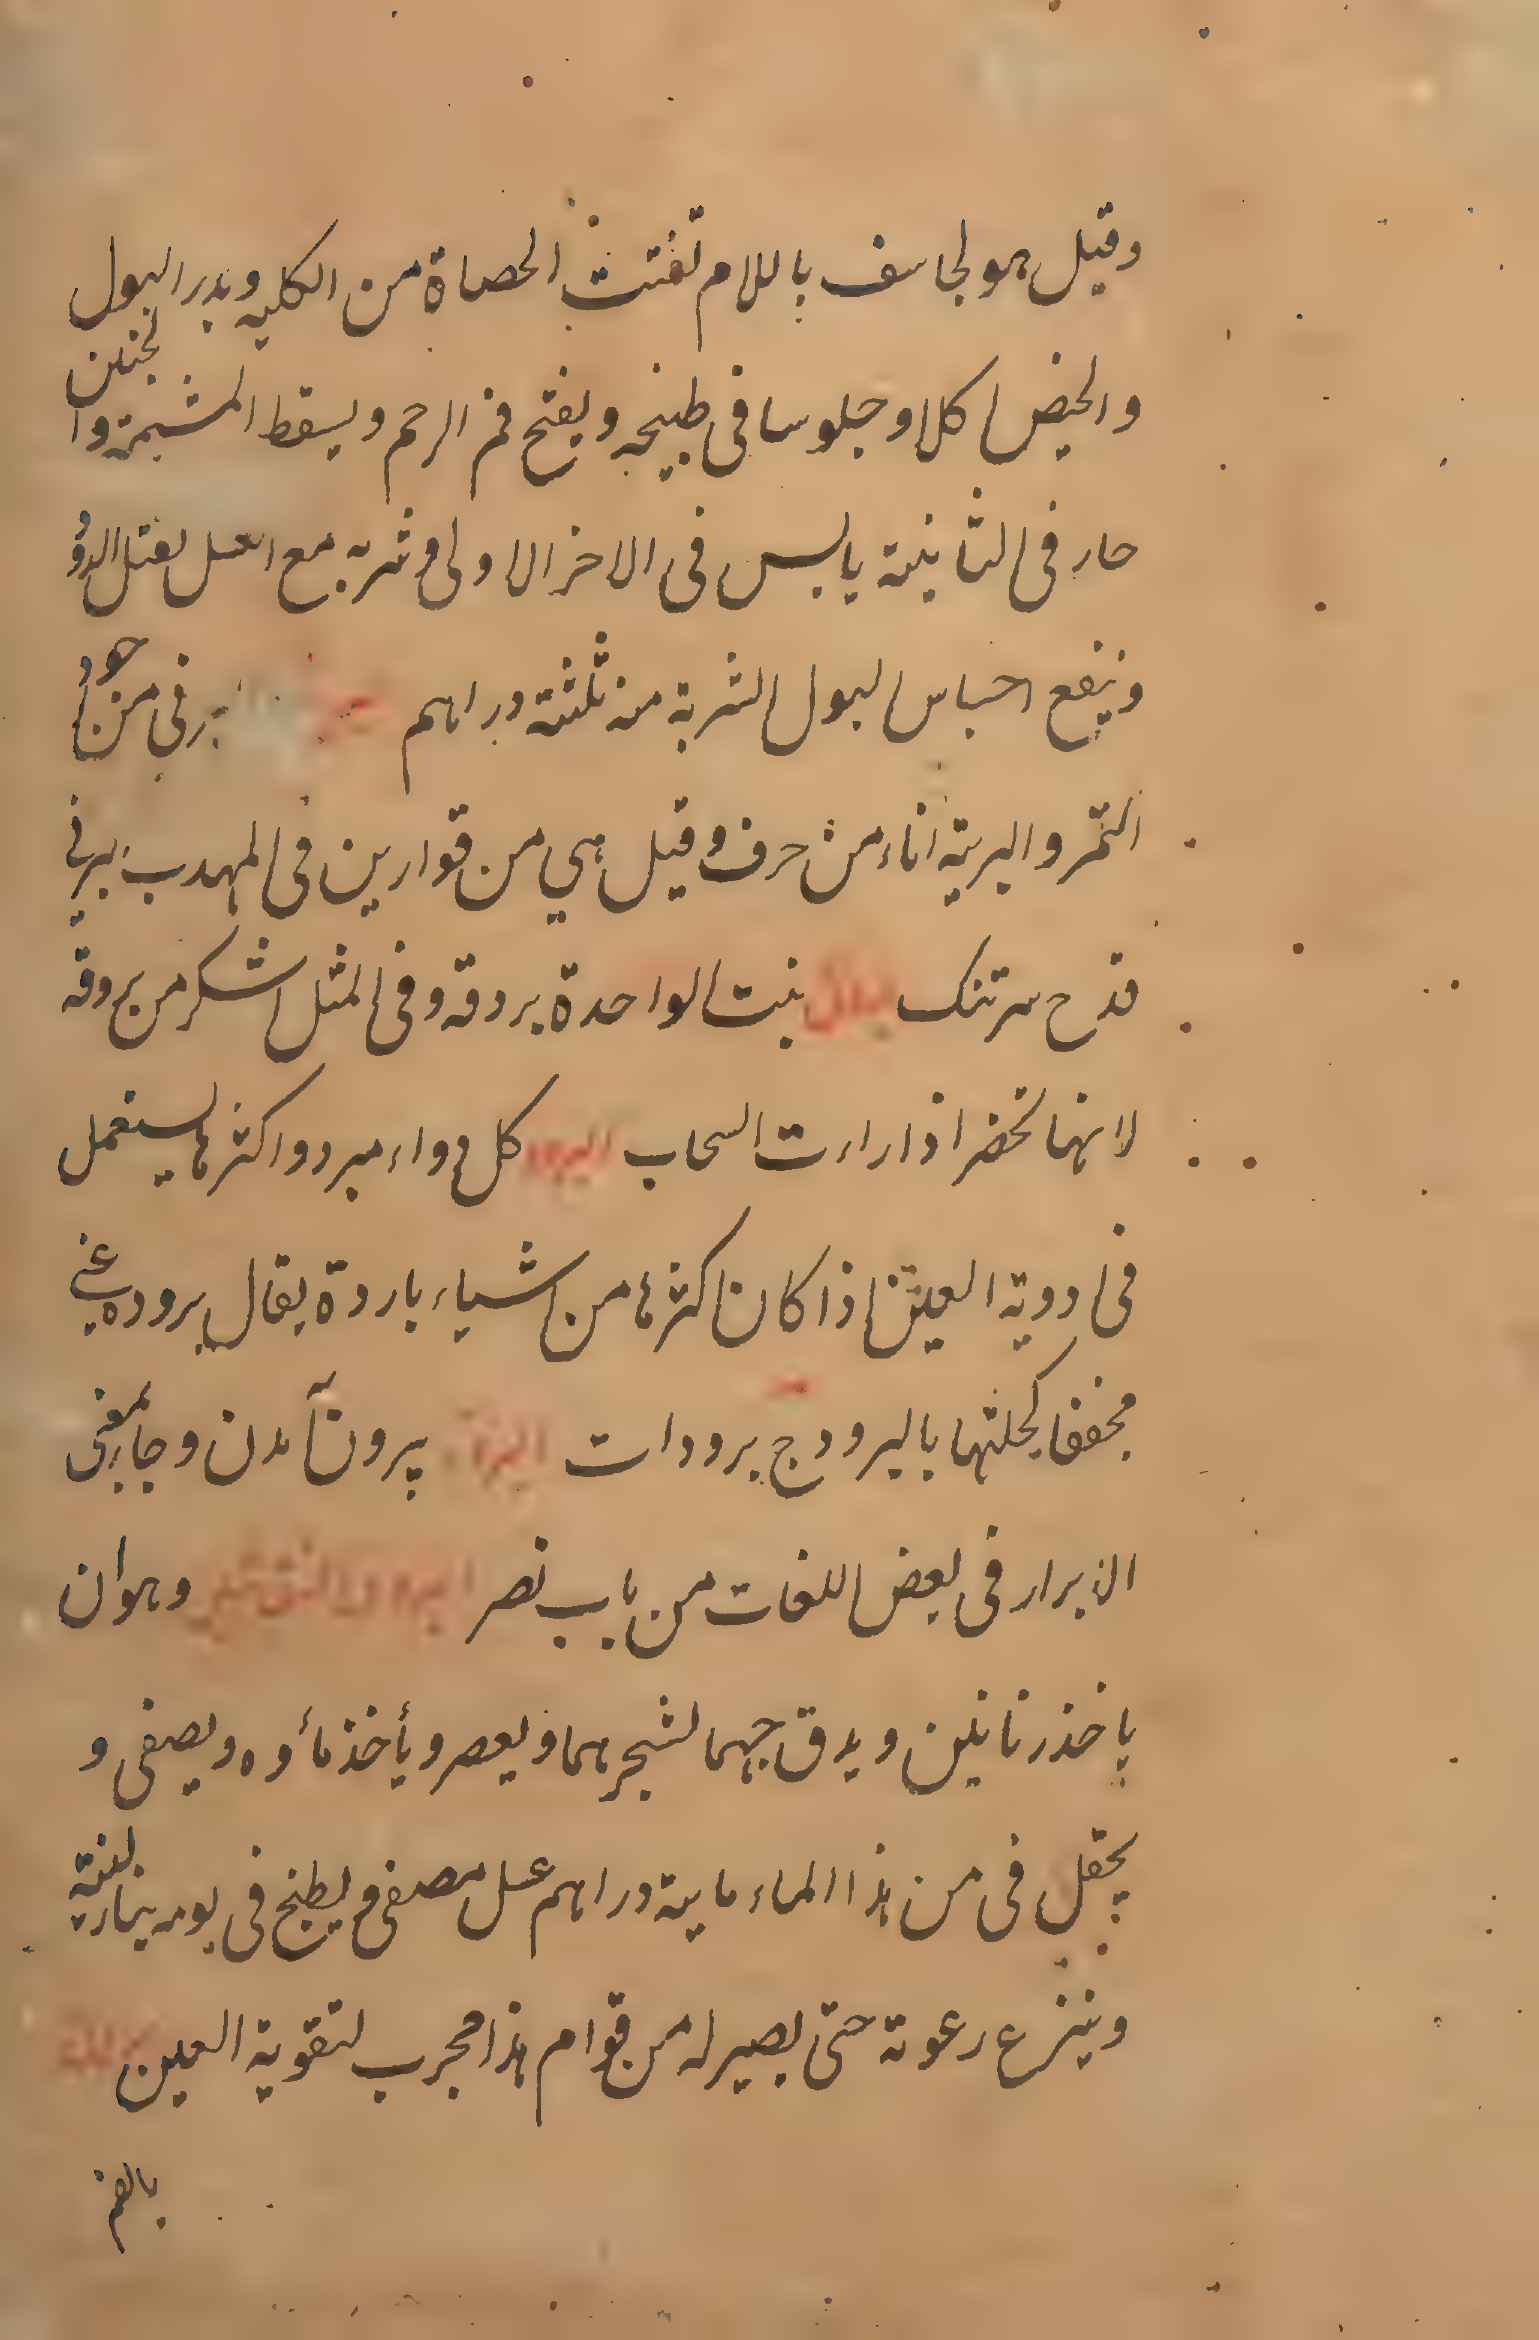 وقيل هو لجاسف باللام تفتت الحصاة من الكليه ويدر البول
والحيض اكلا وجلوسا فى طبيخه ويفتح فم الرحم ويسقط المشيمة والجنين
حار فى الثانية يابس فى الاخر الاولى وشربه مع العسل يقتل الدود
وينفع احباس البول الشربة منه ثلثة دراهم برنى من اجود
التمر والبرية اناء من خرف وقيل هي من قوارين فى المهدب برنى
قدح سرتنك نبت الواحدة بروقه وفى المثل اشكر من بروقه
لانها تخضر اذا راءت السحاب البرود كل دواء مبرد واكثرها يستعمل
فى ادوية العين اذا كان اكثرها من اشياء باردة يقال بروده عنى
مخففا كحلتها بالبرود ج برودات البراز بيرون آمدن وجا بمعنى
الابرار فى بعض اللغات من باب نصر وهو ان
ياخذ رنانين ويدق جهما لشجرهما ويعصر ويأخذ مأوه ويصفى و
يجعل فى من هذا الماء ماية دراهم عسل مصفى ويطبخ فى بومه بنار لينة
وينزع رعوتة حتى يصير له من قوام هذا مجرب لتقوية العين
بالضم